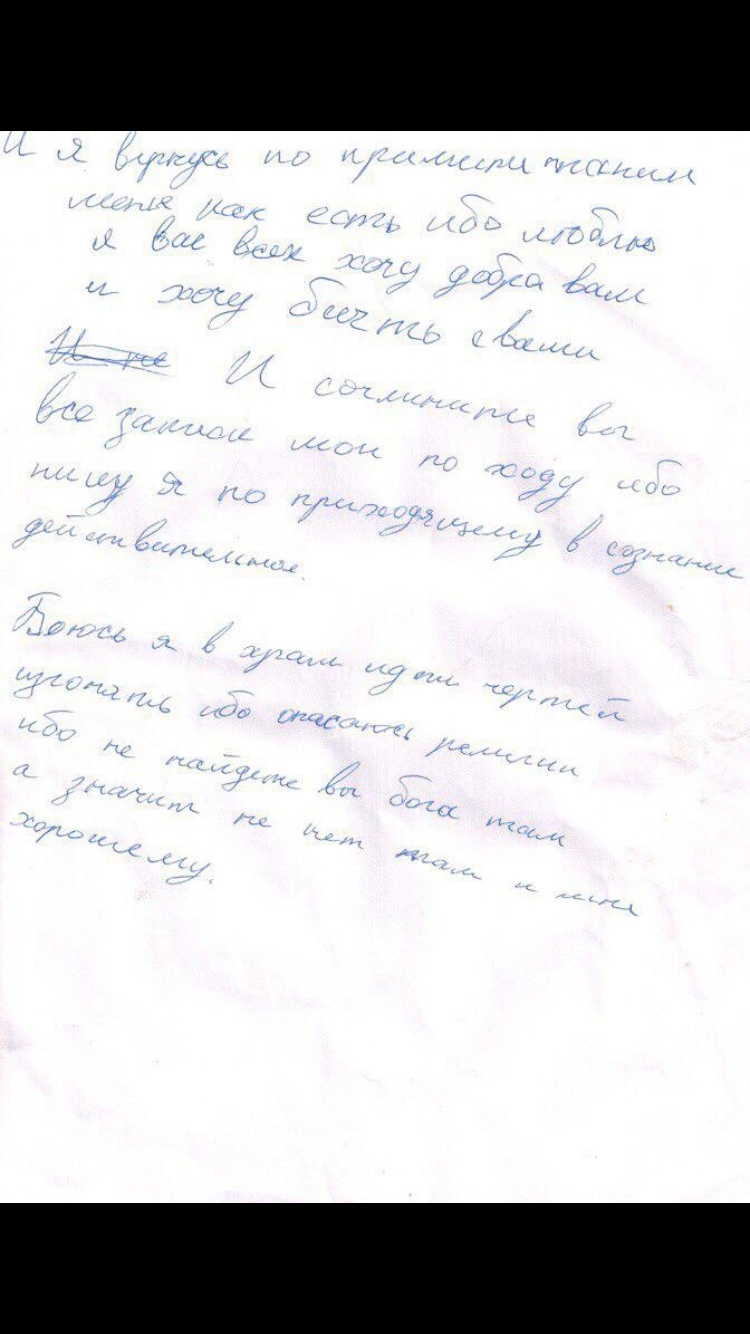 И я вернусь но примите таким
меня как есть ибо люблю
я вас всех хочу добра вам
и хочу быть с вами
И вы
все записи мои по ходу ибо
пишу я по приходящему в сознание
действительное.
Боюсь я в храм идти чертей
изгонять ибо опасаюсь религии
ибо не найдете вы бога там
а значит не чет там и мне
хорошему.